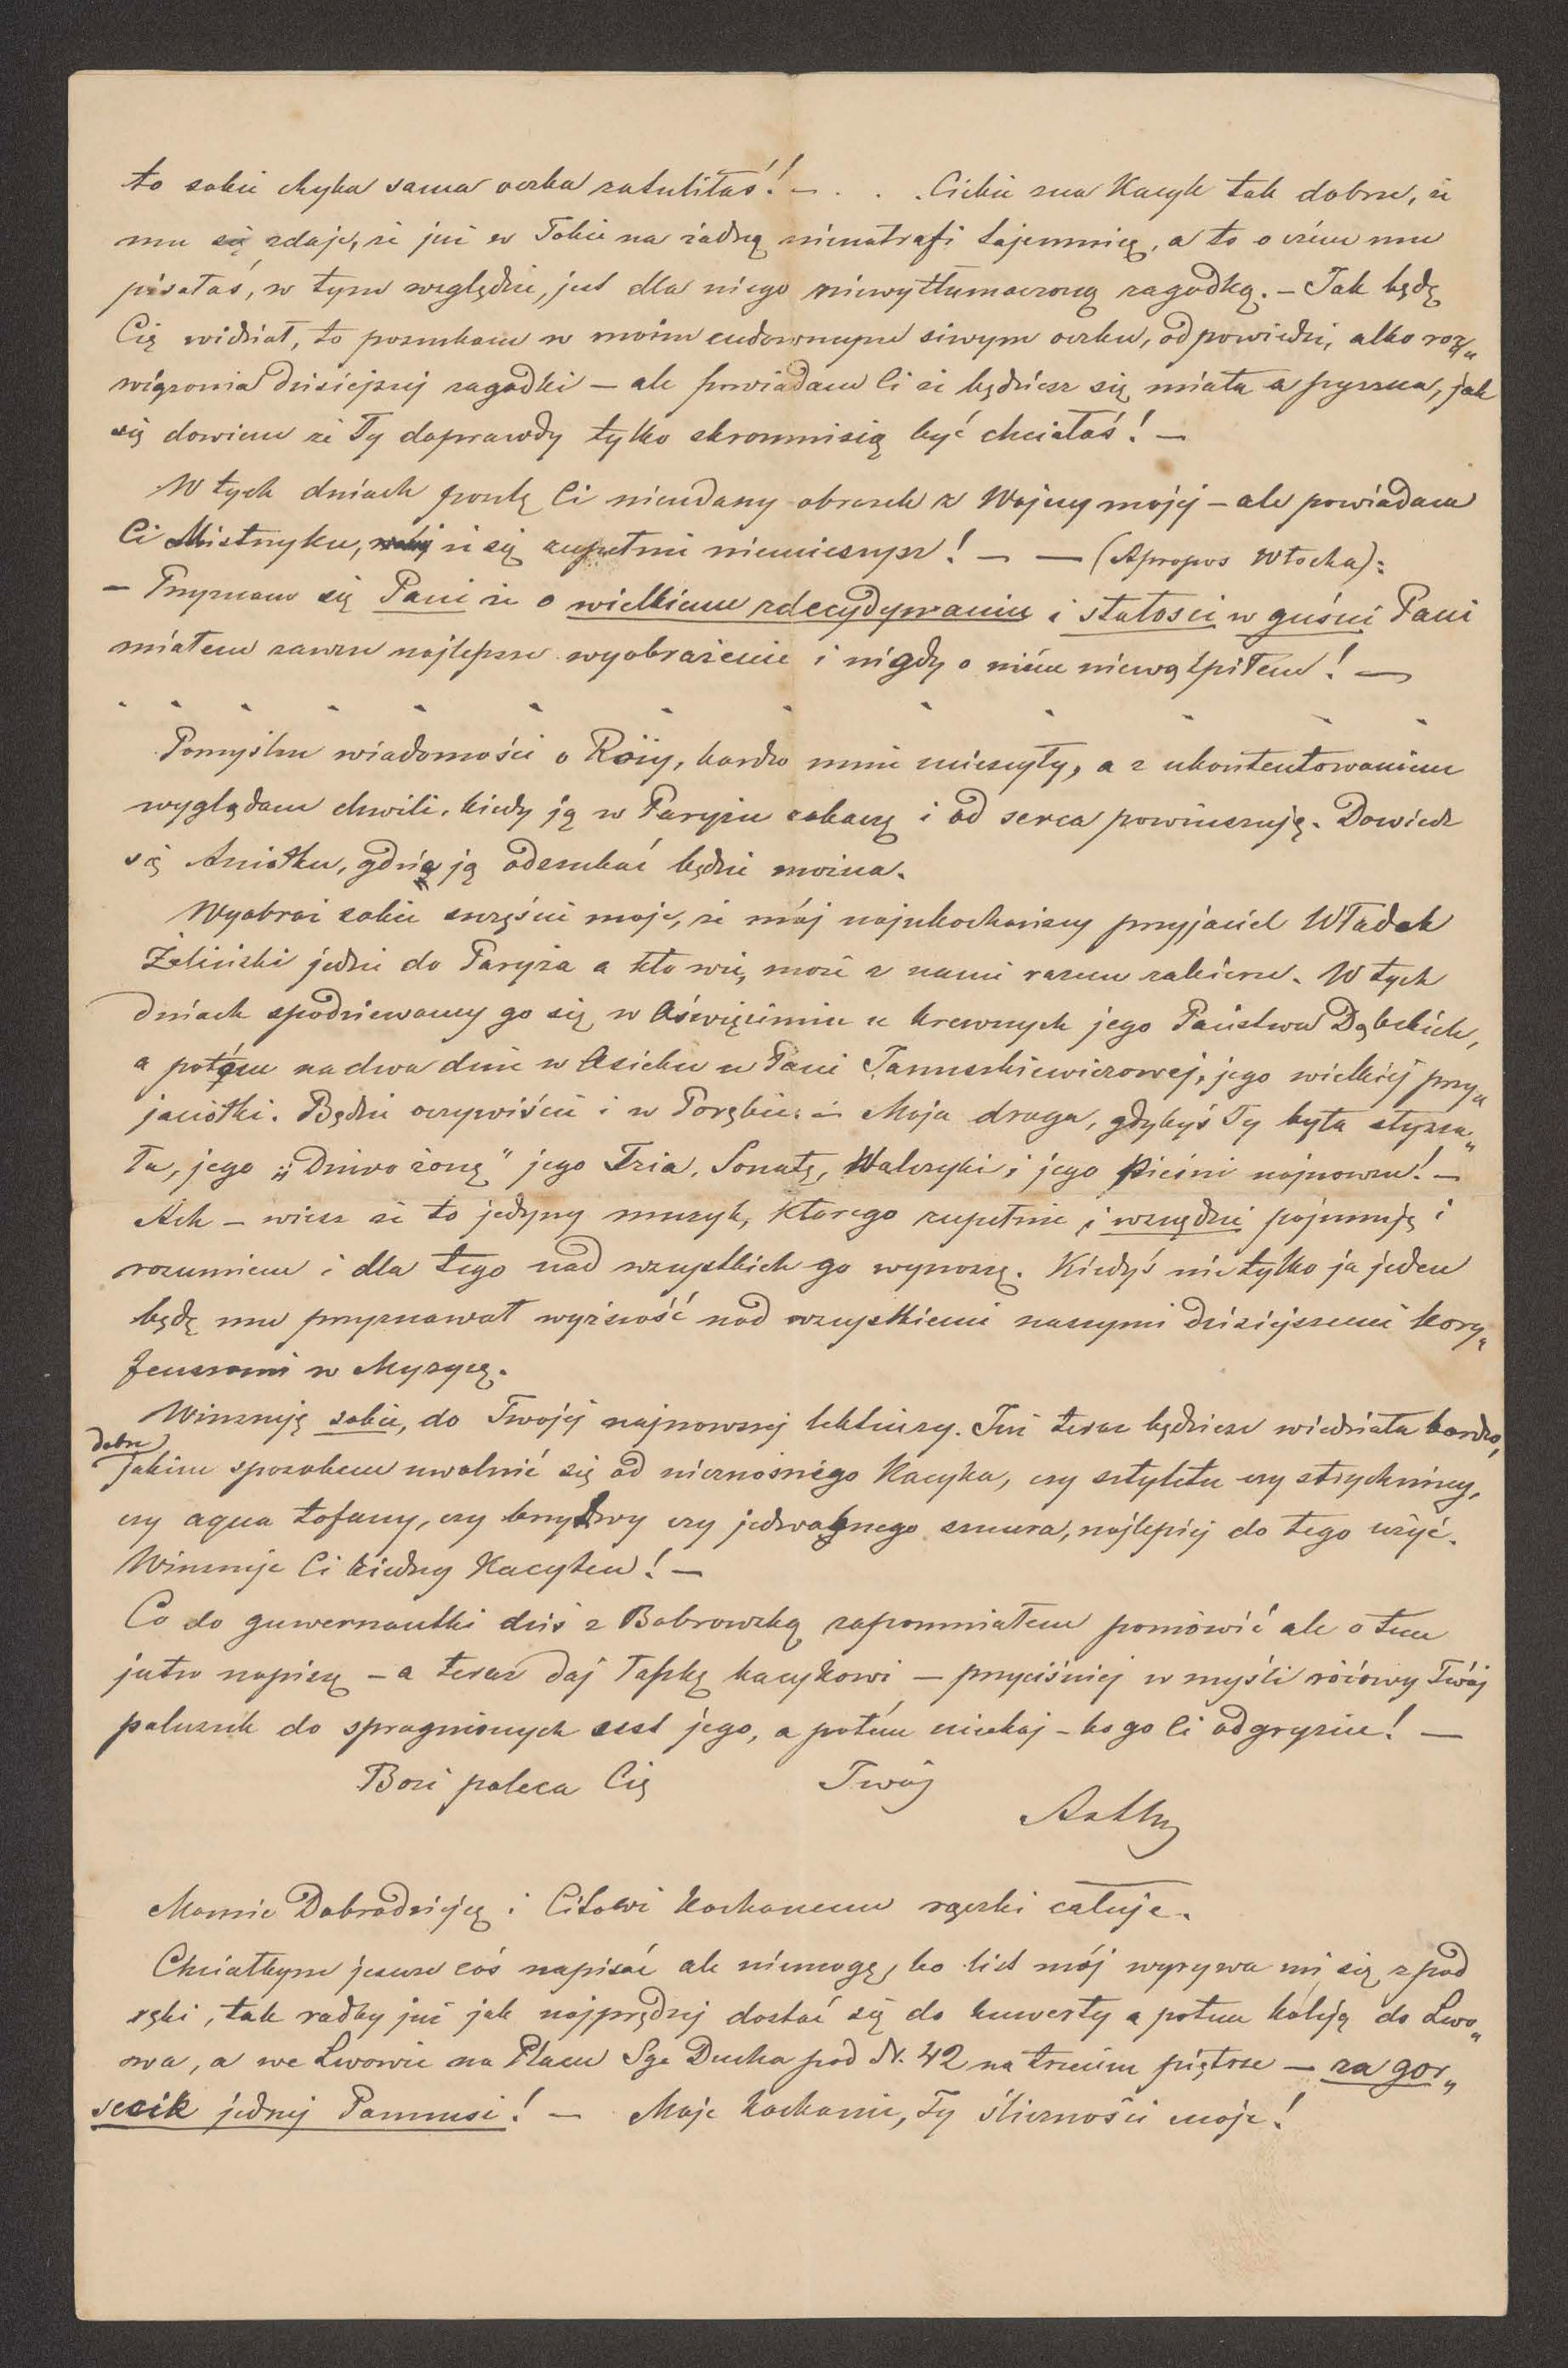 to sobie chyba sama oczka zatuliłaś! — . . . Ciebie zna Kacyk tak dobrze, że
mu się zdaje, że już w Tobie na żadną nienatrafi tajemnicę, a to o czém mu
pisałaś, w tym względzie, jest dla niego niewytłumaczoną zagadką. — Jak będę
Cię widział, to poszukam w moim cudownym siwym oczku, odpowiedzi, albo roz„
wiązania dzisiejszej zagadki — ale powiadam Ci że będziesz się miała z pyszna, jak
się dowiem że Ty doprawdy tylko skromnisią być chciałaś! —
W tych dniach poszlę Ci nieudany obrazek z Wojny mojej — ale powiadam
Ci Mistrzyku, że się zupełnie nieucieszysz! — — (Apropos Włocha):
— Przyznam się Pani że o wielkiem zdecydywaniu i stałości w guście Pani
miałem zawsze najlepsze wyobrażenie i nigdy o niém niewątpiłem! —
Pomyślne wiadomości o Róży, bardzo mnie ucieszyły, a z ukontentowaniem
wyglądam chwili, kiedy ją w Paryżu zobaczę i od serca powinszuję. Dowiedz
się Aniołku, gdzie ją odszukać będzie można.
Wyobraź sobie szczęście moje, że mój najukochańszy przyjaciel Władek
Żeliński jedzie do Paryża a kto wie, może z nami razem zabierze. W tych
dniach spodziewamy go się w Oświęcimiu u krewnych jego Państwa Dąbskich,
a potém na dwa dnie w Osieku u Pani Januszkiewiczowej, jego wielkiéj przy„
jaciółki. Będzie oczywiście i w Porębie. — Moja droga, gdybyś Ty była słysza„
ła, jego „Dziwożonę" jego Tria, Sonatę, Walczyki, i jego Pieśni najnowsze! —
Ach — wiesz że to jedyny muzyk, którego zupełnie i wszędzie pojmuję i
rozumiem i dla tego nad wszystkich go wynoszę. Kiedyś nietylko ja jeden
będę mu przyznawał wyższość nad wszystkiemi naszymi dzisiejszemi kory„
feuszami w Muzyce.
Winszuję sobie, do Twojéj najnowszej lektiury. Już teraz będziesz wiedziała bardzo
dobrze,
jakim sposobem uwolnić się od nieznośnego Kacyka, czy sztyletu czy strychniny,
czy aqua tofany, czy brzytwy czy jedwabnego sznura, najlepiej do tego użyć.
Winszuje Ci biedny Kacyku! —
Co do guwernantki dziś z Bobrowską zapomniałem pomówić ale o tem
jutro napiszę — a teraz daj łapkę kacykowi — przyciśniej w myśli różowy Twój
paluszek do spragnionych ust jego, a potém uciekaj — bo go Ci odgryzie! —
Bozi poleca Cię Twój
Artur
Mamie Dobrodziejce i Citowi kochanemu rączki całuje.
Chciałbym jeszcze coś napisać ale niemogę, bo list mój wyrywa mi się z pod
ręki, tak radby już jak najprędzej dostać się do kuwerty a potem koléją do Lwo„
owa, a we Lwowie na Placu Sgo Ducha pod N. 42 na trzecim piętrze — za gor„
secik jednej Pannusi! — Moje kochanie, Ty śliczności moje!